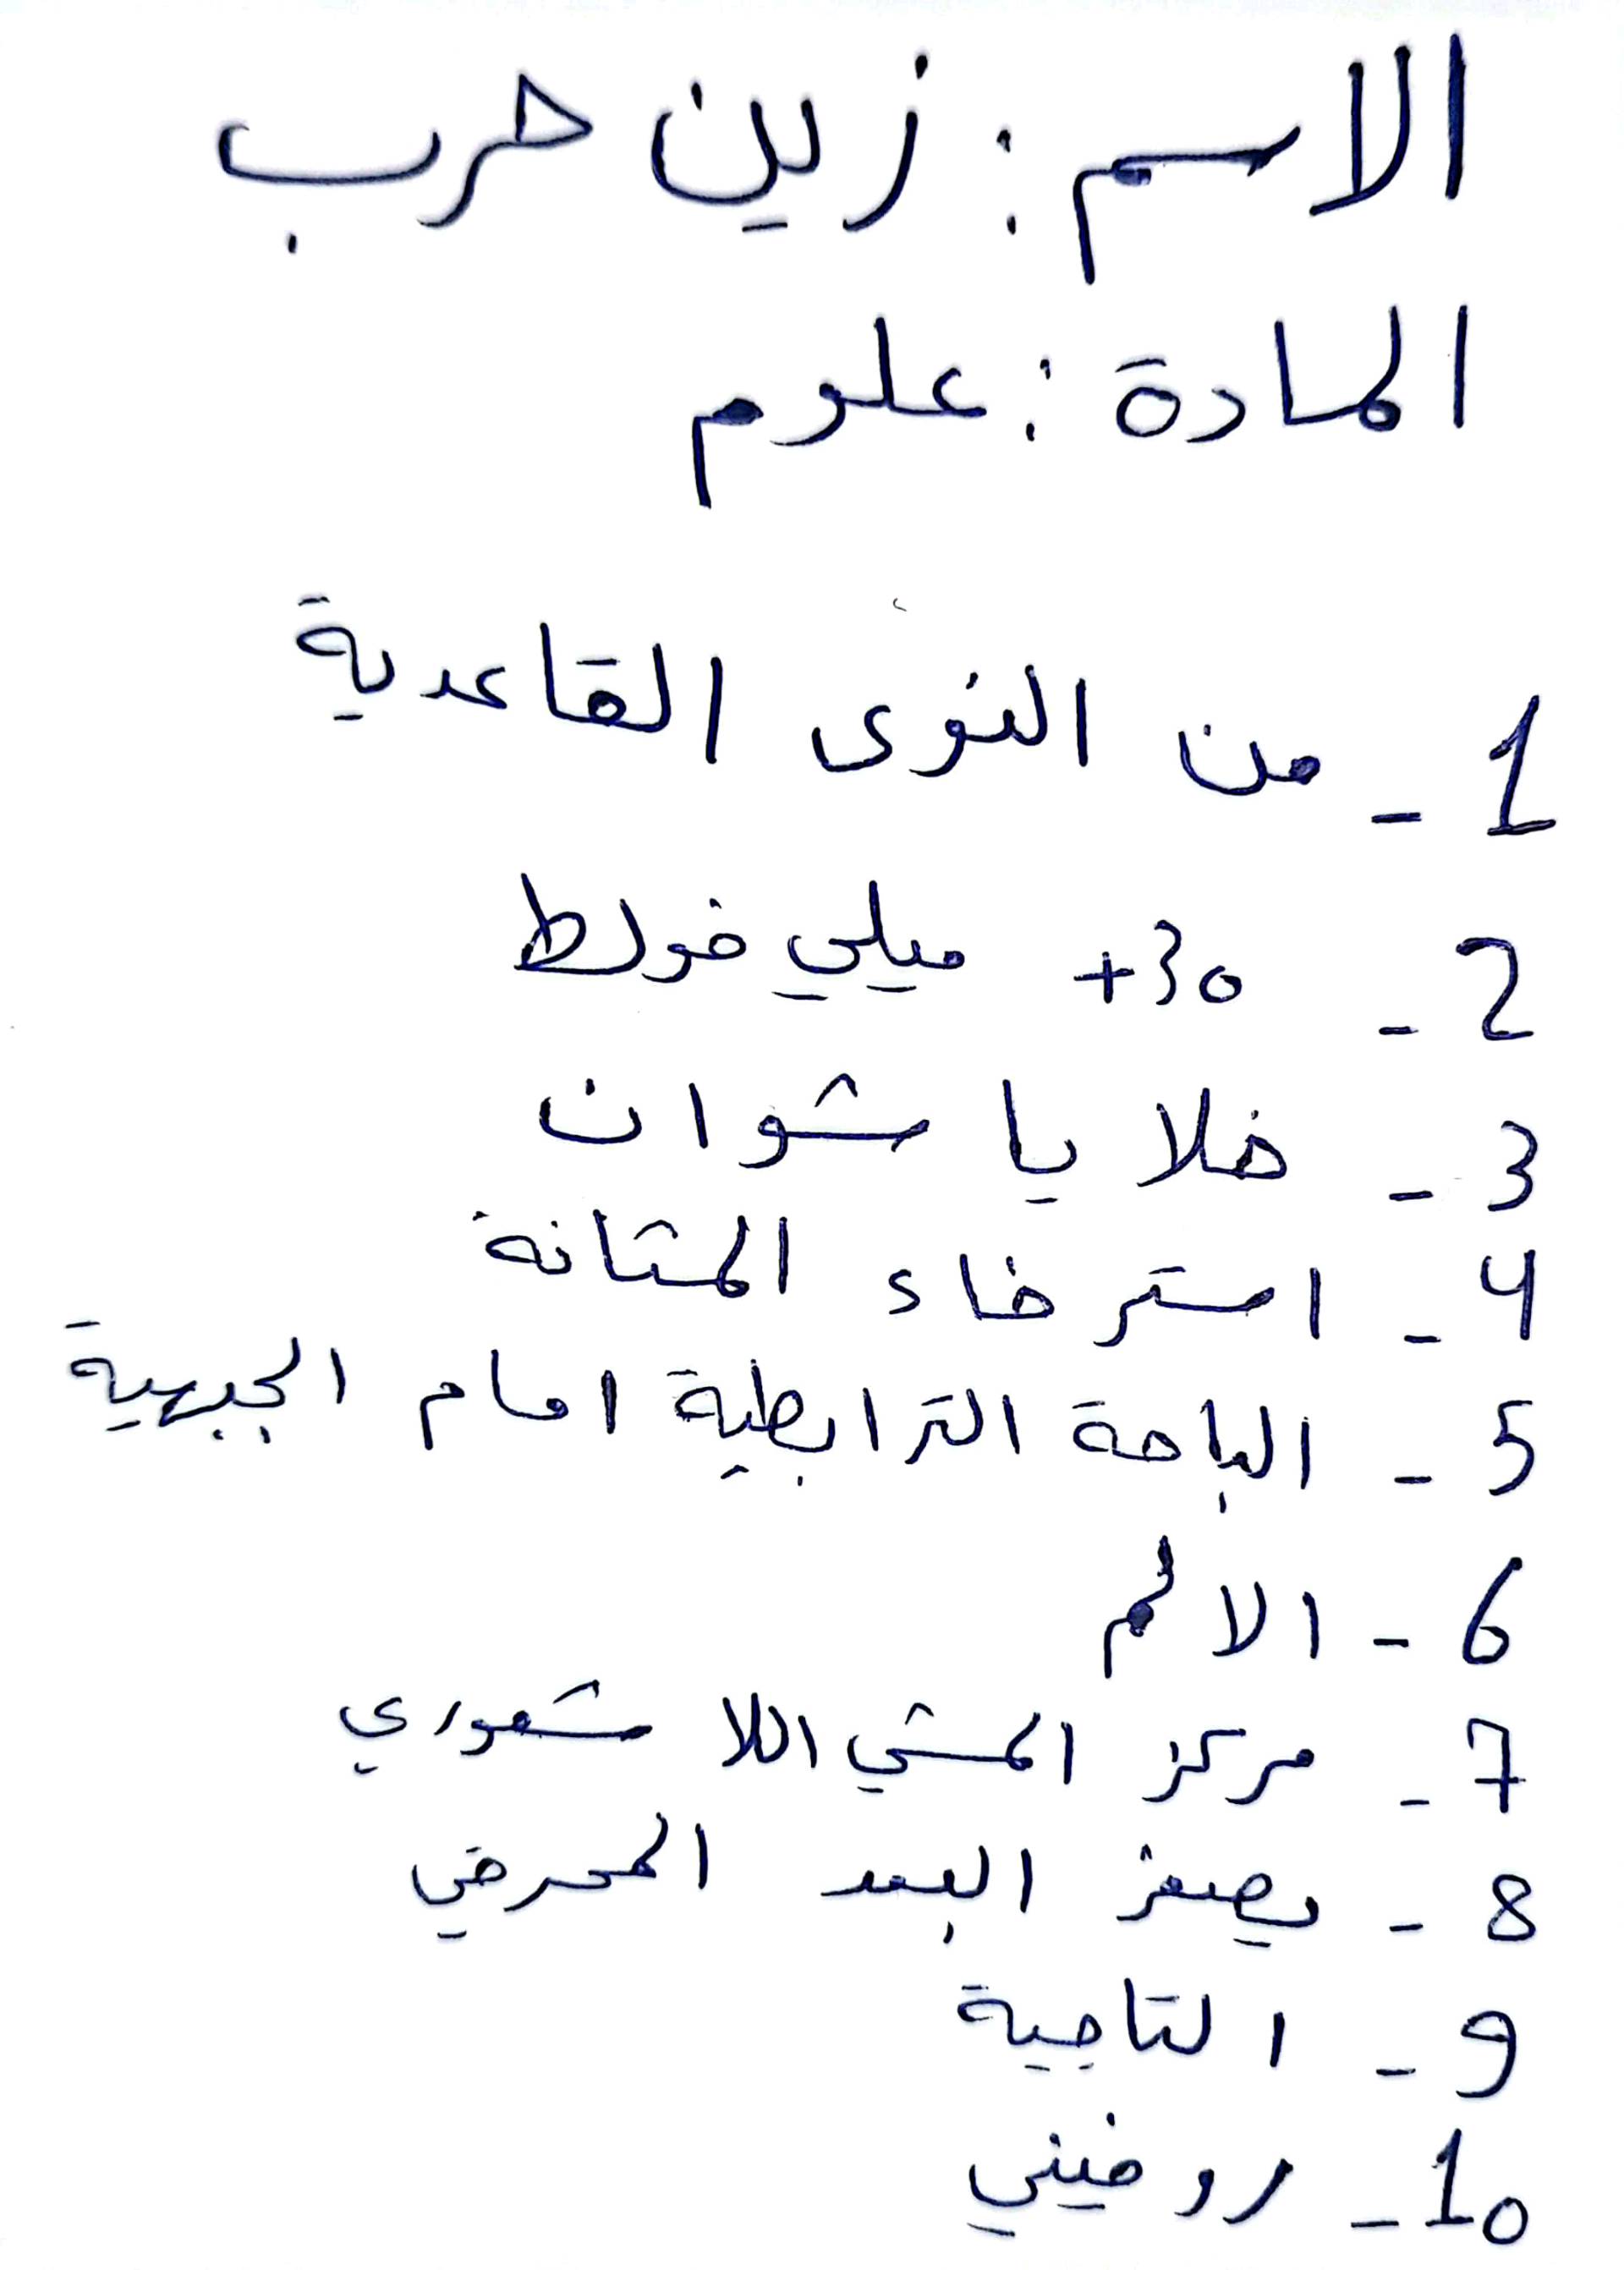 الاسم : زين حرب
المادة : علوم
1 - من النوى القاعدية
2 - +30 ميلي فولط
3 - خلايا شوان
4 - استرخاء المثانة
5 - الباحة الترابطية امام الجبهية
6 - الالم
7 - مركز المشي اللا شعوري
8 - يصغر البعد المحرقي
9 - التاجية
10 - روفيني